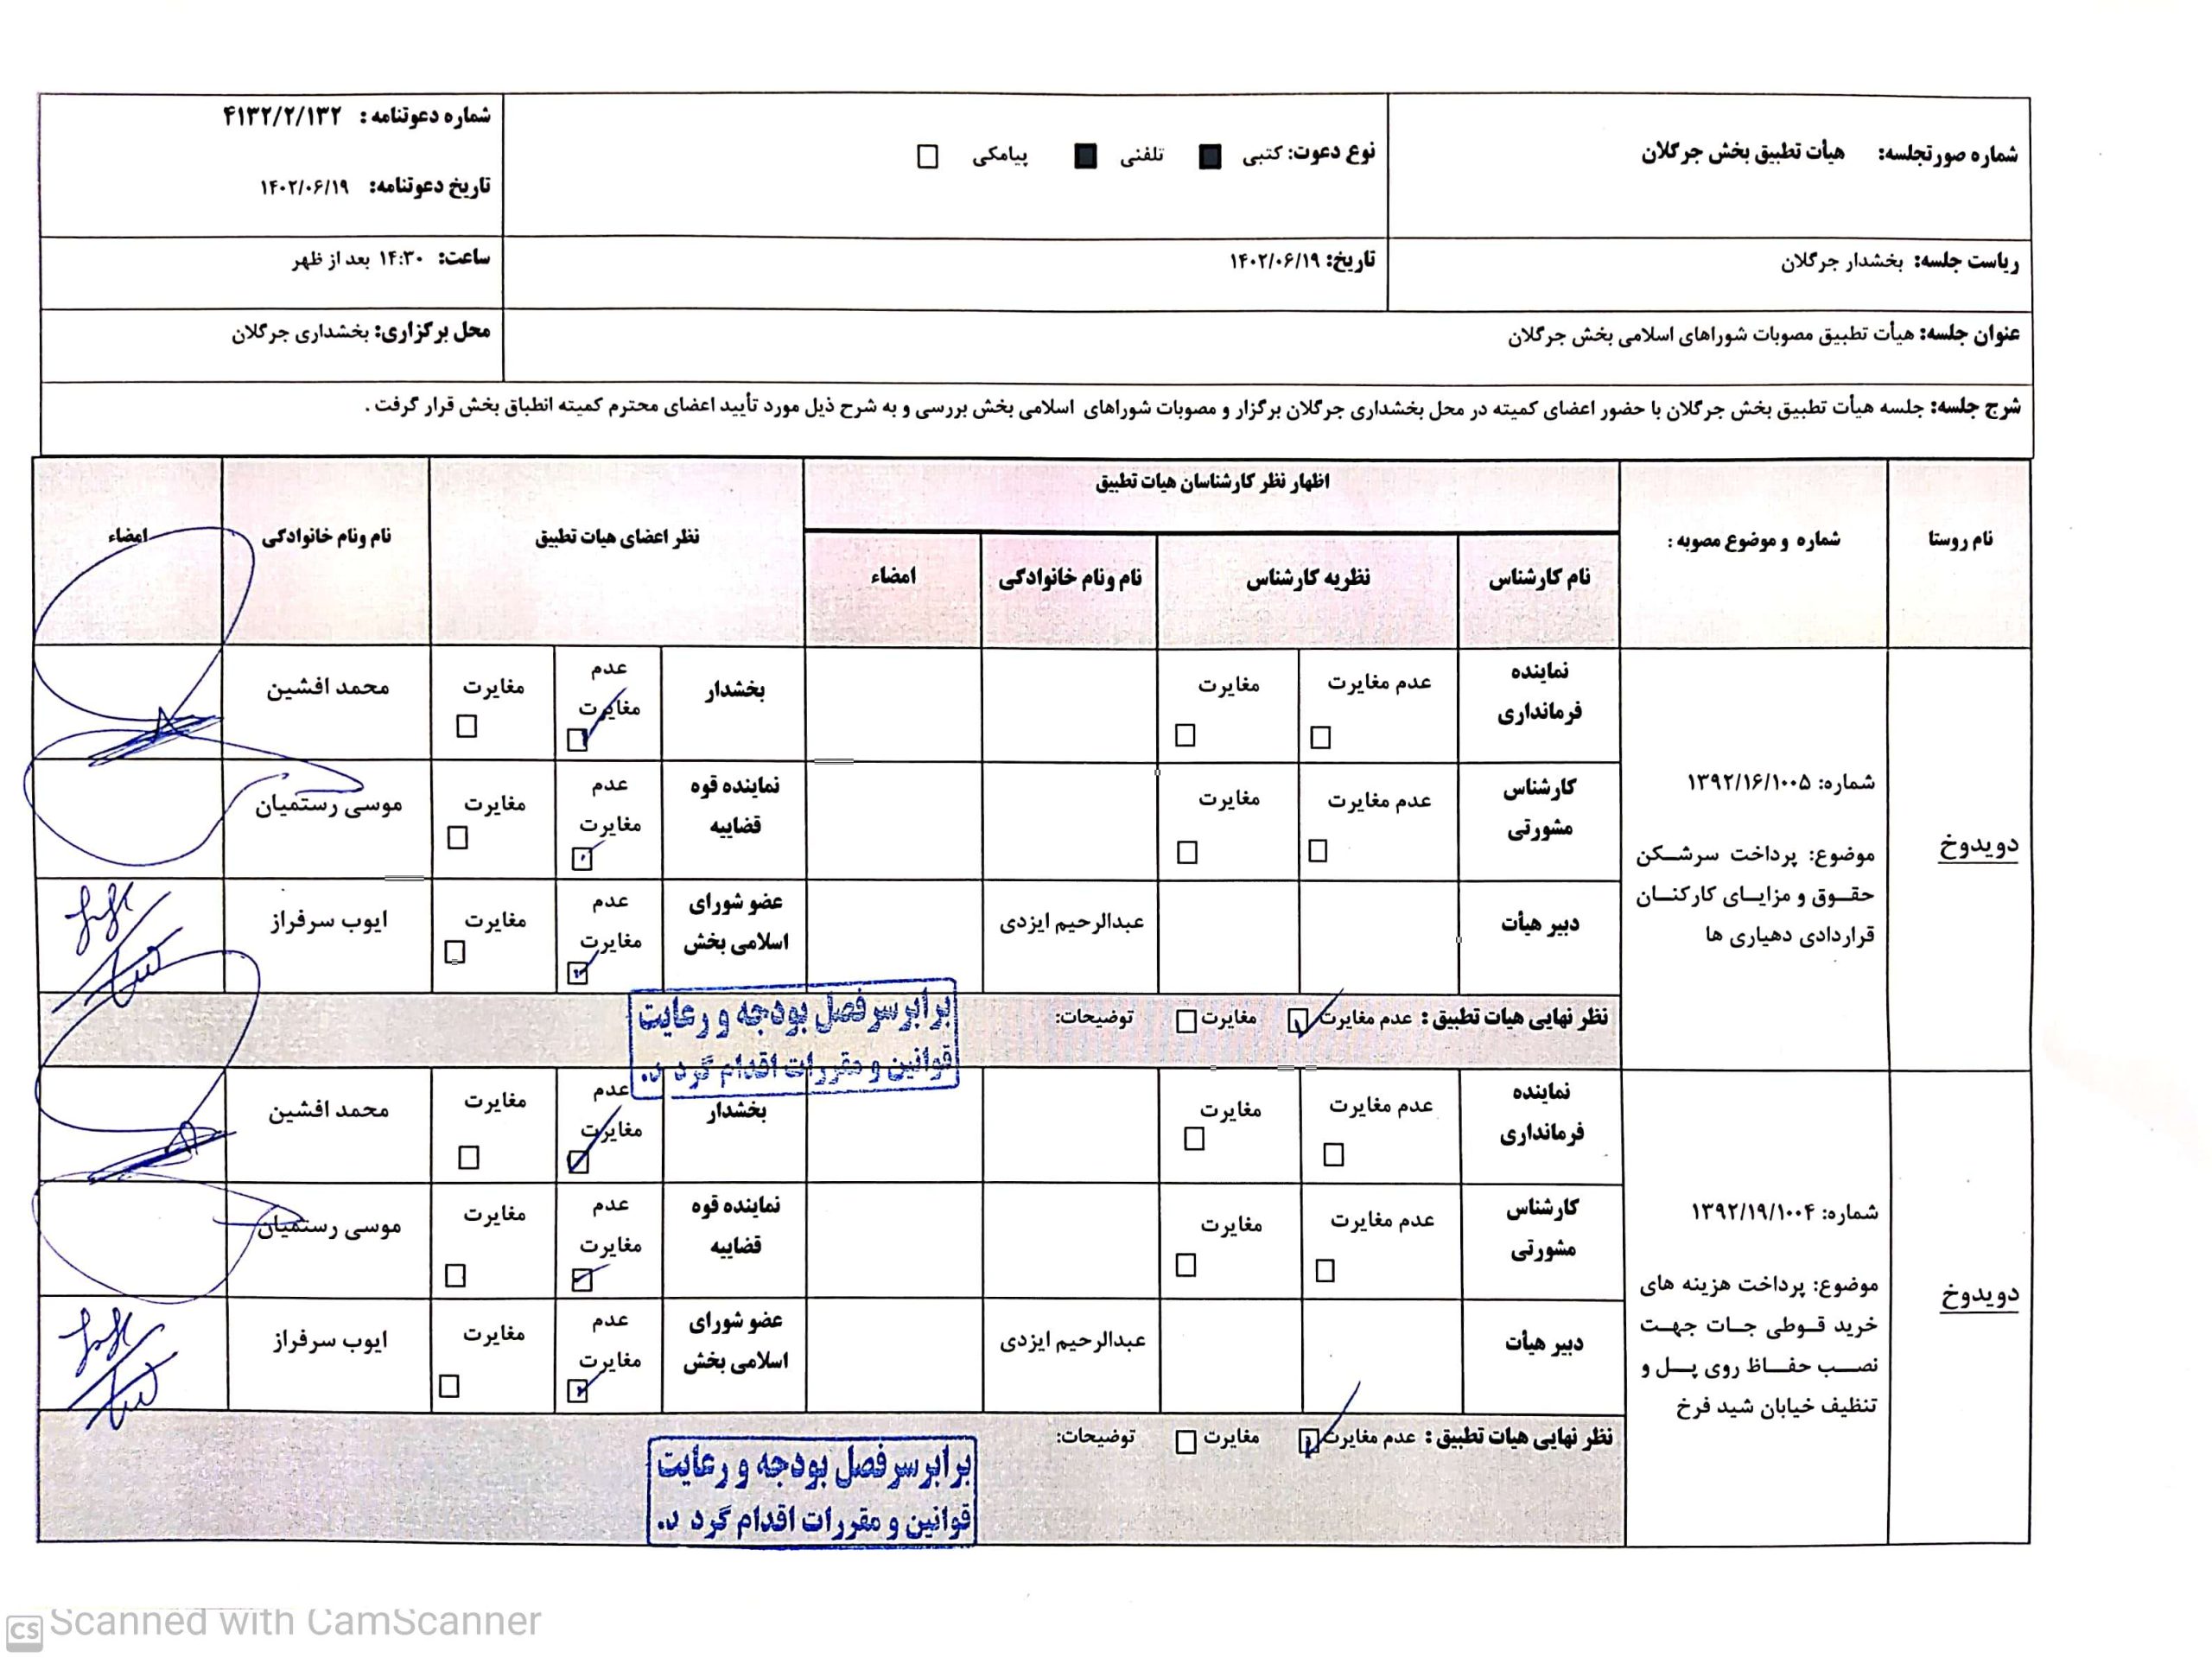 شماره صورتجلسه: هیأت تطبیق بخش جرگلان
نوع دعوت: کتبی ■ تلفنی ■ پیامکی □
شماره دعوتنامه : ۴۱۳۲/۲/۱۳۲
تاریخ دعوتنامه: ۱۴۰۲/۰۶/۱۹
ریاست جلسه: بخشدار جرگلان
تاریخ: ۱۴۰۲/۰۶/۱۹
ساعت: ۱۴:۳۰ بعد از ظهر
عنوان جلسه: هیأت تطبیق مصوبات شوراهای اسلامی بخش جرگلان
محل برگزاری: بخشداری جرگلان
شرح جلسه: جلسه هیأت تطبیق بخش جرگلان با حضور اعضای کمیته در محل بخشداری جرگلان برگزار و مصوبات شوراهای اسلامی بخش بررسی و به شرح ذیل مورد تأیید اعضای محترم کمیته انطباق بخش قرار گرفت .
نام روستا
شماره و موضوع مصوبه :
اظهار نظر کارشناسان هیات تطبیق
نام کارشناس
نظریه کارشناس
نام ونام خانوادگی
امضاء
نظر اعضای هیات تطبیق
نام ونام خانوادگی
امضاء
دویدوخ
شماره: ۱۳۹۲/۱۶/۱۰۰۵
موضوع: پرداخت سرشکن
حقوق و مزایای کارکنان
قراردادی دهیاری ها
نماینده
فرمانداری
عدم مغایرت □
مغایرت □
بخشدار
عدم
مغایرت
مغایرت □
محمد افشین
کارشناس
مشورتی
عدم مغایرت □
مغایرت □
نماینده قوه
قضاییه
عدم
مغایرت
مغایرت □
موسی رستمیان
دبیر هیأت
عبدالرحیم ایزدی
عضو شورای
اسلامی بخش
عدم
مغایرت
مغایرت □
ایوب سرفراز
نظر نهایی هیات تطبیق : عدم مغایرت مغایرت □ توضیحات:
برابر سرفصل بودجه و رعایت
قوانین و مقررات اقدام گردد.
دویدوخ
شماره: ۱۳۹۲/۱۹/۱۰۰۴
موضوع: پرداخت هزینه های
خرید قوطی جات جهت
نصب حفاظ روی پل و
تنظیف خیابان شید فرخ
نماینده
فرمانداری
عدم مغایرت □
مغایرت □
بخشدار
عدم
مغایرت
مغایرت □
محمد افشین
کارشناس
مشورتی
عدم مغایرت □
مغایرت □
نماینده قوه
قضاییه
عدم
مغایرت
مغایرت □
موسی رستمیان
دبیر هیأت
عبدالرحیم ایزدی
عضو شورای
اسلامی بخش
عدم
مغایرت
مغایرت □
ایوب سرفراز
نظر نهایی هیات تطبیق : عدم مغایرت مغایرت □ توضیحات:
برابر سرفصل بودجه و رعایت
قوانین و مقررات اقدام گردد.
CS Scanned with CamScanner